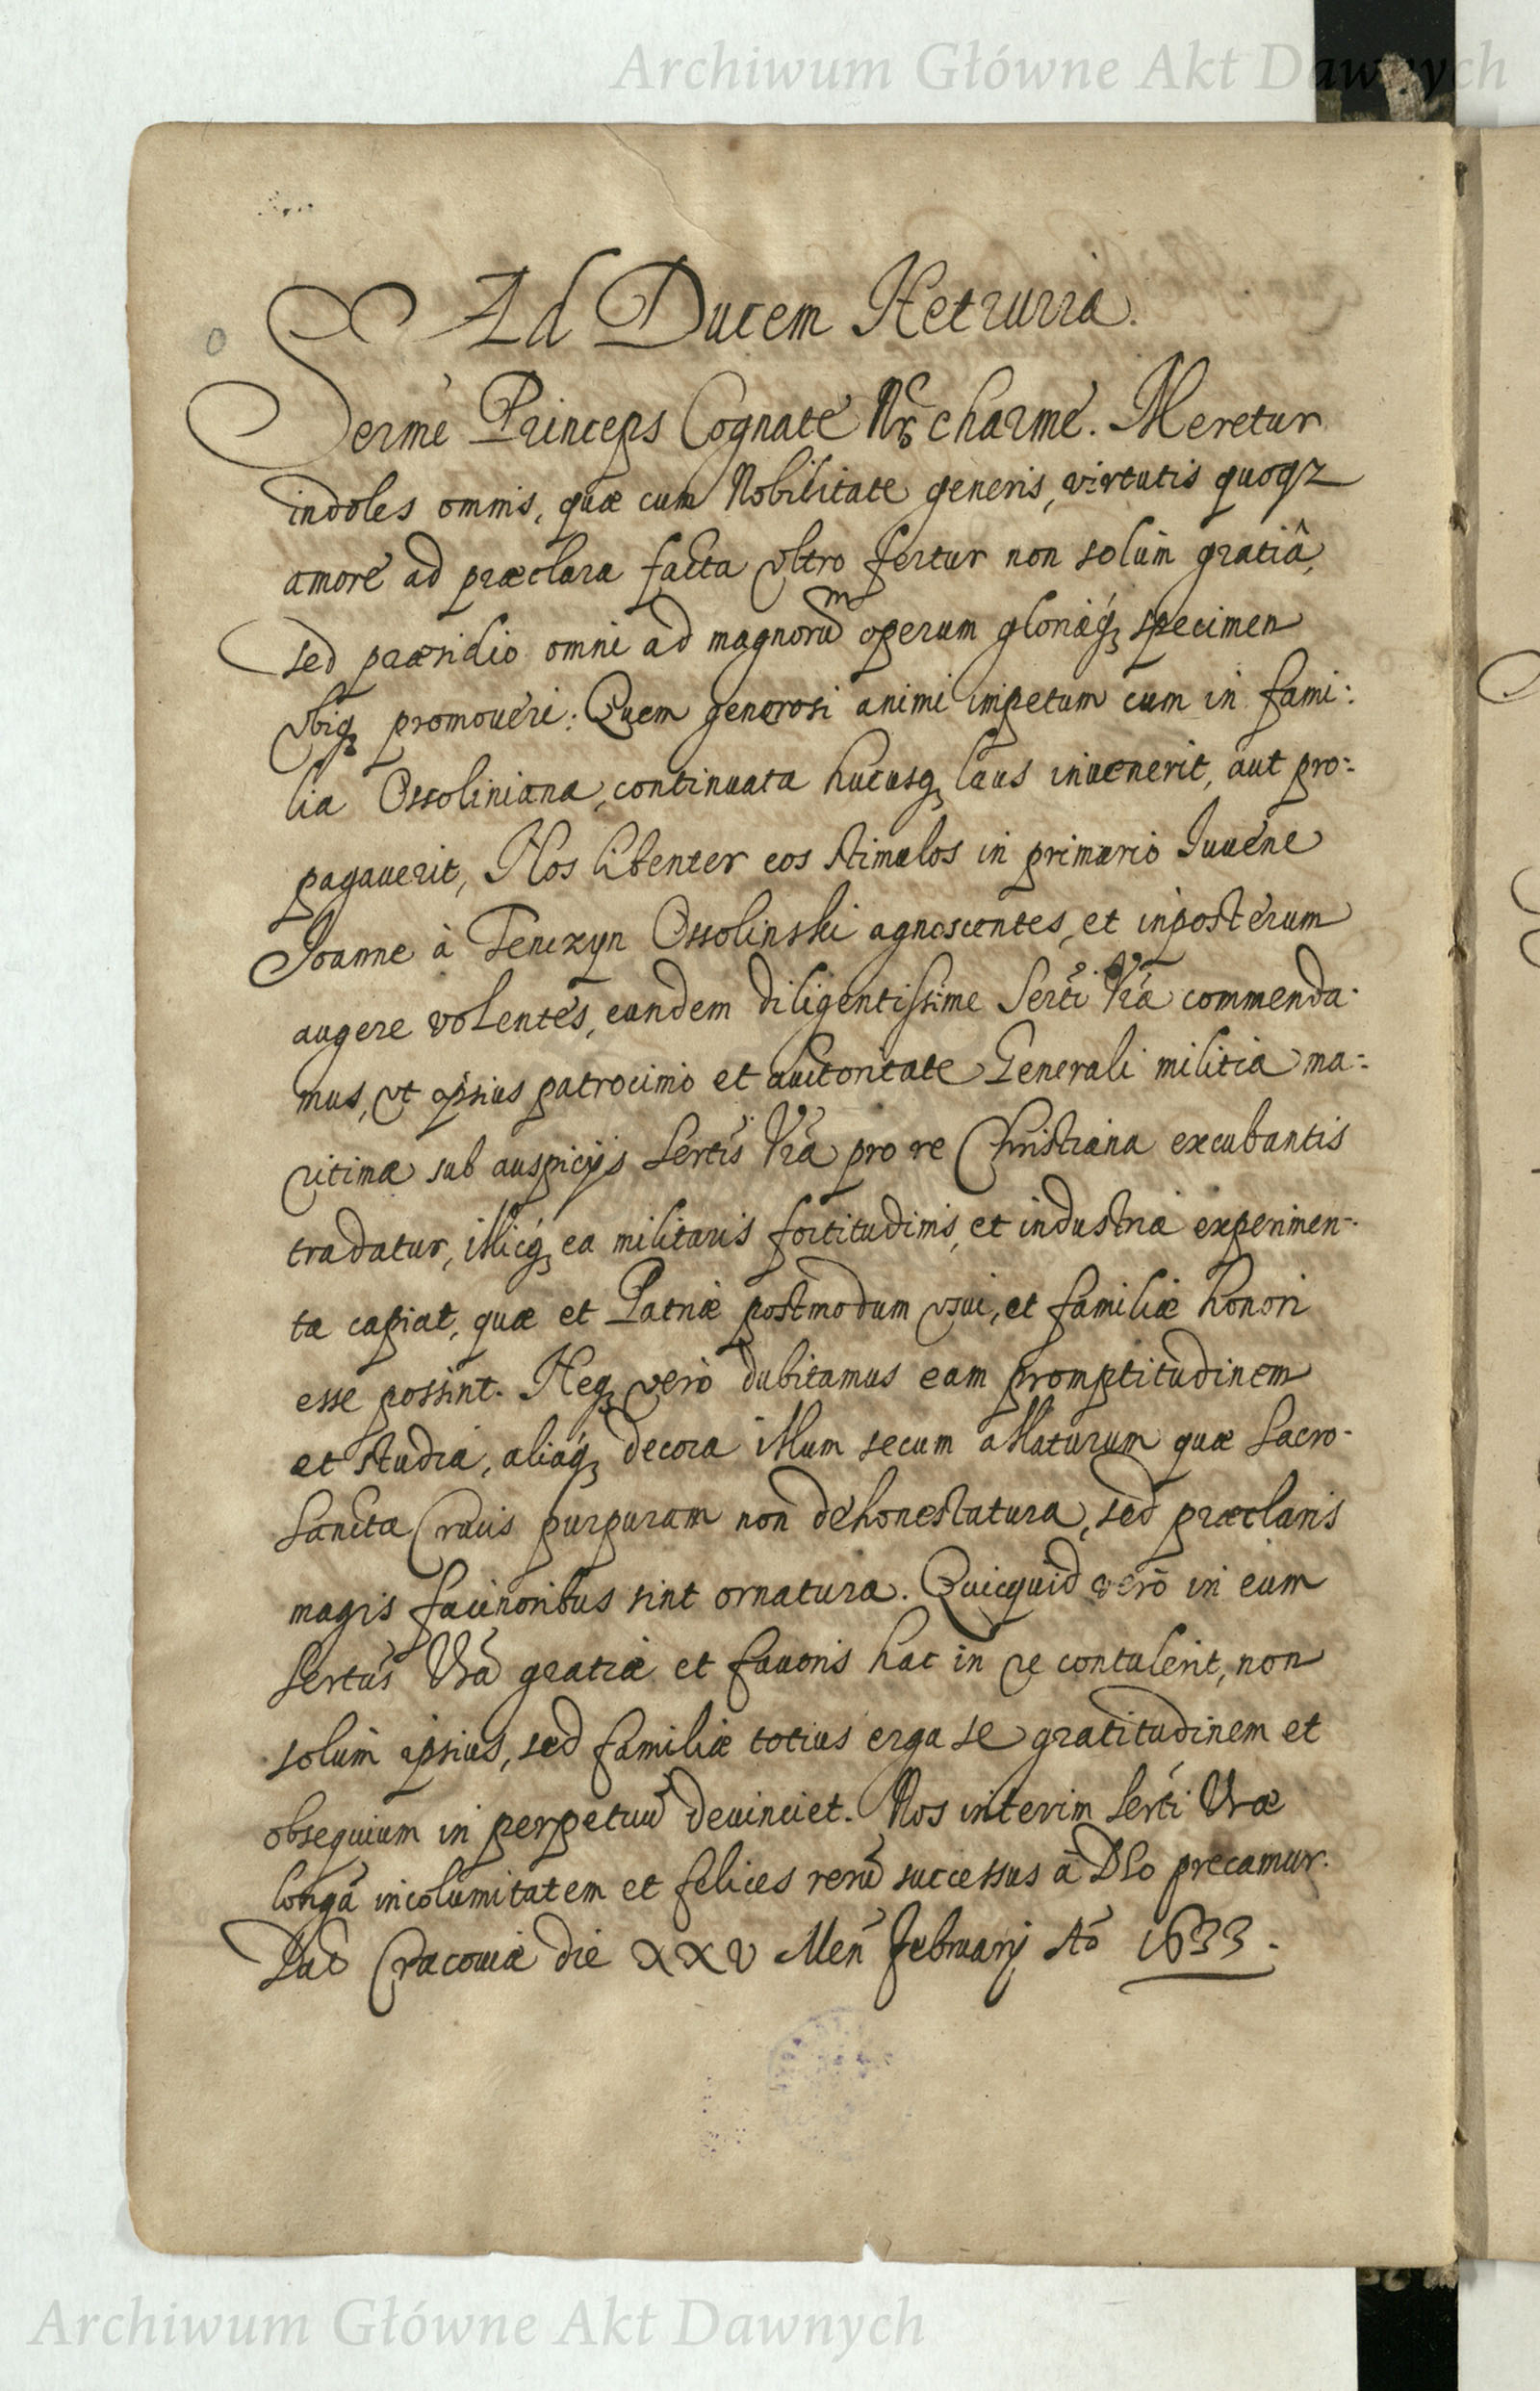 Archiwum Główne Akt Dawnych
Ad Ducem Hetruriæ.
Serme Princeps Cognate Nr charme. Meretur
indoles omnis, quæ cum Nobilitate generis, virtutis quoqz
amore ad præclara facta vltro fertur non solùm gratiâ,
sed præsidio omni ad magnorum operum gloriæq specimen
vbiq promoueri: Quem generosi animi impetum cum in fami:
lia Ossoliniana, continuata hucusq laus inuenerit, aut pro:
pagauerit, Nos libenter eos stimulos in primario Iuuene
Joanne à Tenczyn Ossolinski agnoscentes, et inposterum
augere volentes, eundem diligentissime Serti Vræ commenda:
mus, vt ipsius patrocinio et auctoritate Generali militiæ ma:
ritimæ sub auspicijs Sertis Vræ pro re Christiana excubantis
tradatur, illicq ea militaris fortitudinis, et industriæ experimen:
ta capiat, quæ et Patriæ postmodum vsui, et familiæ honori
esse possint. Neq verò dubitamus eam promptitudinem
et studia, aliaq decora illum secum allaturum quæ Sacro-
sanctæ Crucis purpuram non dehonestatura, sed præclaris
magis facinoribus sint ornatura. Quicquid verò in eum
Sertas Vra gratiæ et fauoris hac in re contulerit, non
solùm ipsius, sed familiæ totius erga se gratitudinem et
obsequium in perpetuū deuinciet. Nos interim Serti Vræ
longā incolumitatem et felices rerū successus à DEo precamur.
Dat Cracouiæ die XXV Men Februarij Aõ 1633.
Archiwum Główne Akt Dawnych